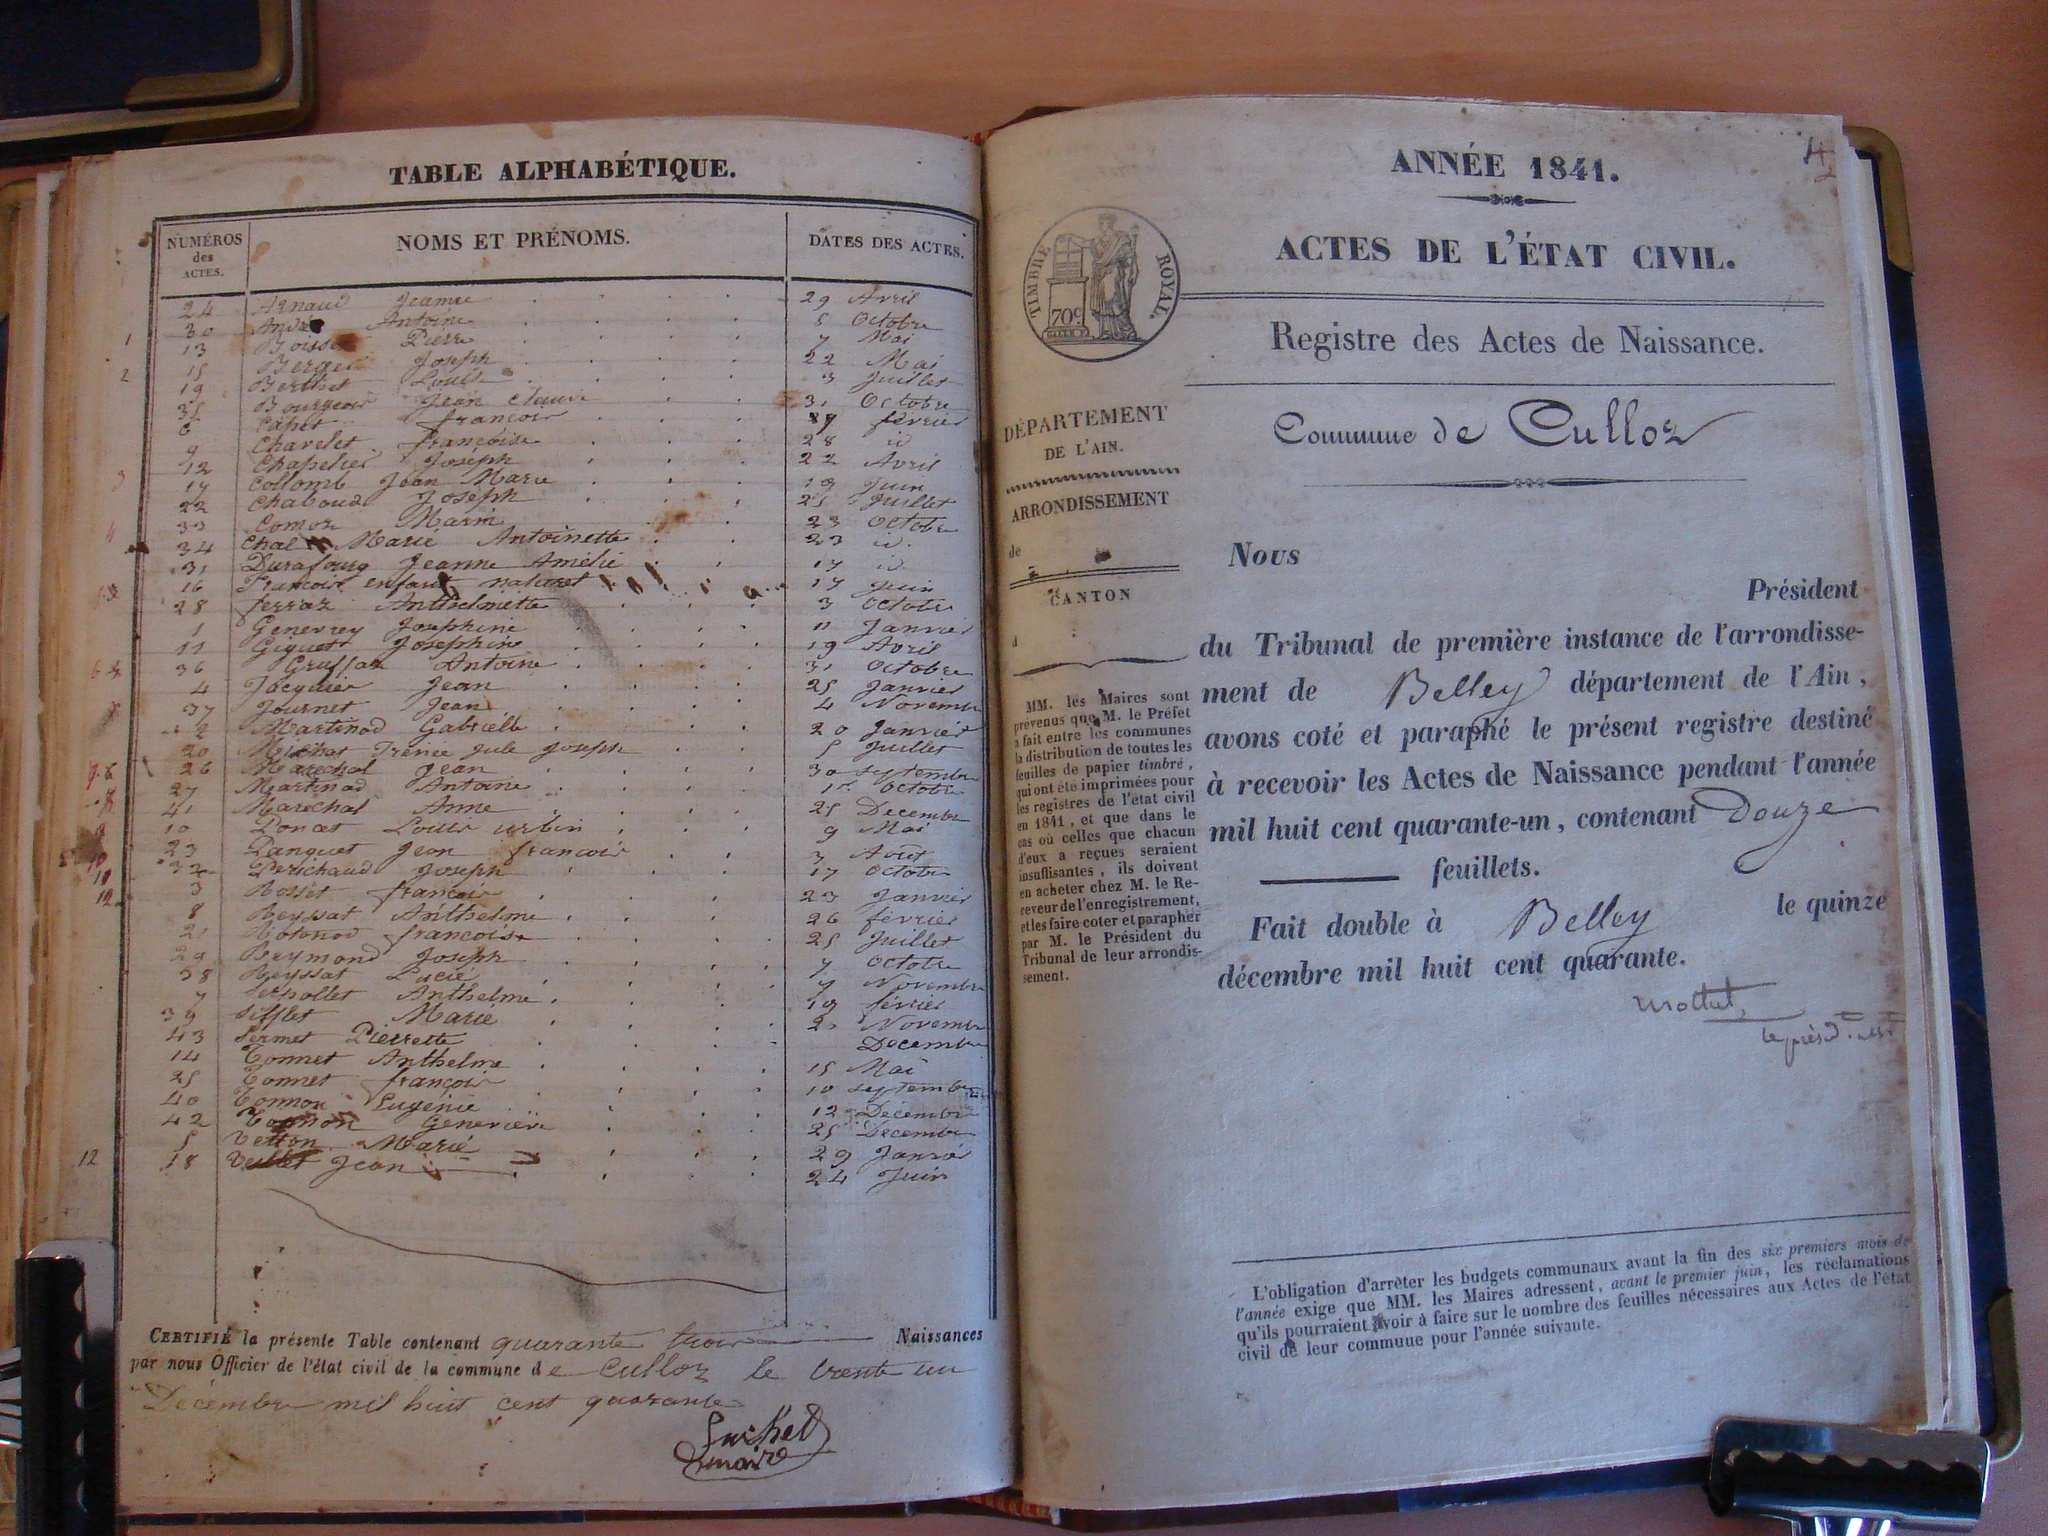 TABLE ALPHABÉTIQUE.
NUMÉROS des ACTES. NOMS ET PRÉNOMS. DATES DES ACTES.
24 Arnaud Jeanne 29 Avril
30 Antoine 5 Octobre
13 Pierre 7 Mai
15 Berger Joseph 22 Mai
19 Berthet Louise 3 Juillet
35 Bourgeois Jean Claude 31 Octobre
6 Capet françois février
9 Chavelet françoise 28 id
12 Chapelier Joseph 22 Avril
17 Collomb Jean Marie 19 Juin
22 Chaboud Joseph 25 Juillet
33 Comoz Marie 23 Octobre
34 Chal Marie Antoinette 23 id.
31 Durafourg Jeanne Amélie 17 id.
16 François enfant naturel 17 Juin
28 ferraz Anthelmette 3 Octobre
1 Genevrey Josephine 11 Janvier
11 Giguet Josephine 19 Avril
36 Gruffaz Antoine 31 Octobre
4 Jacquier Jean 25 Janvier
37 Journet Jean 4 Novembre
2 Martinod Gabrielle 20 Janvier
20 Michat Irenée Jule Joseph 5 Juillet
26 Marechal Jean 30 septembre
27 Martinod Antoine 1er Octobre
41 Marechal Anne 25 Decembre
10 Ponat Louis urbin 9 Mai
23 Panguet Jean françois 3 Août
32 Perichaud Joseph 17 Octobre
3 Rosset françois 23 Janvier
8 Reyssat Anthelme 26 février
21 françoise 25 Juillet
29 Reymond Joseph 7 Octobre
38 Reyssat Lucie 7 Novembre
7 Serpollet Anthelme 19 février
39 Sifflet Marie Novembre
43 Sermet Pierrette Decembre
14 Tonnet Anthelme 15 Mai
25 Tonnet françois 10 septembre
40 Tonnon Eugénie 12 Decembre
42 Geneviève 25 Decembre
5 Vetton Marie 29 Janvier
12 18 Veillet Jean 24 Juin
CERTIFIÉ la présente Table contenant quarante trois Naissances
par nous Officier de l'état civil de la commune de Culloz le trente un
Décembre mil huit cent quarante
maire
ANNÉE 1841.
ACTES DE L'ÉTAT CIVIL.
TIMBRE ROYAL.
70c.
Registre des Actes de Naissance.
Commune de Culloz
DÉPARTEMENT
DE L'AIN.
ARRONDISSEMENT
de
CANTON
d
MM. les Maires sont
prévenus que M. le Préfet
a fait entre les communes
la distribution de toutes les
feuilles de papier timbré,
qui ont été imprimées pour
les registres de l'état civil
en 1841, et que dans le
cas où celles que chacun
d'eux a reçues seraient
insuffisantes, ils doivent
en acheter chez M. le Re-
ceveur de l'enregistrement,
et les faire coter et parapher
par M. le Président du
Tribunal de leur arrondis-
sement.
Nous
Président
du Tribunal de première instance de l'arrondisse-
ment de Belley département de l'Ain,
avons coté et paraphé le présent registre destiné
à recevoir les Actes de Naissance pendant l'année
mil huit cent quarante-un, contenant Douze
feuillets.
Fait double à Belley le quinze
décembre mil huit cent quarante.
L'obligation d'arrêter les budgets communaux avant la fin des six premiers mois de
l'année exige que MM. les Maires adressent, avant le premier juin, les réclamations
qu'ils pourraient avoir à faire sur le nombre des feuilles nécessaires aux Actes de l'état
civil de leur commune pour l'année suivante.